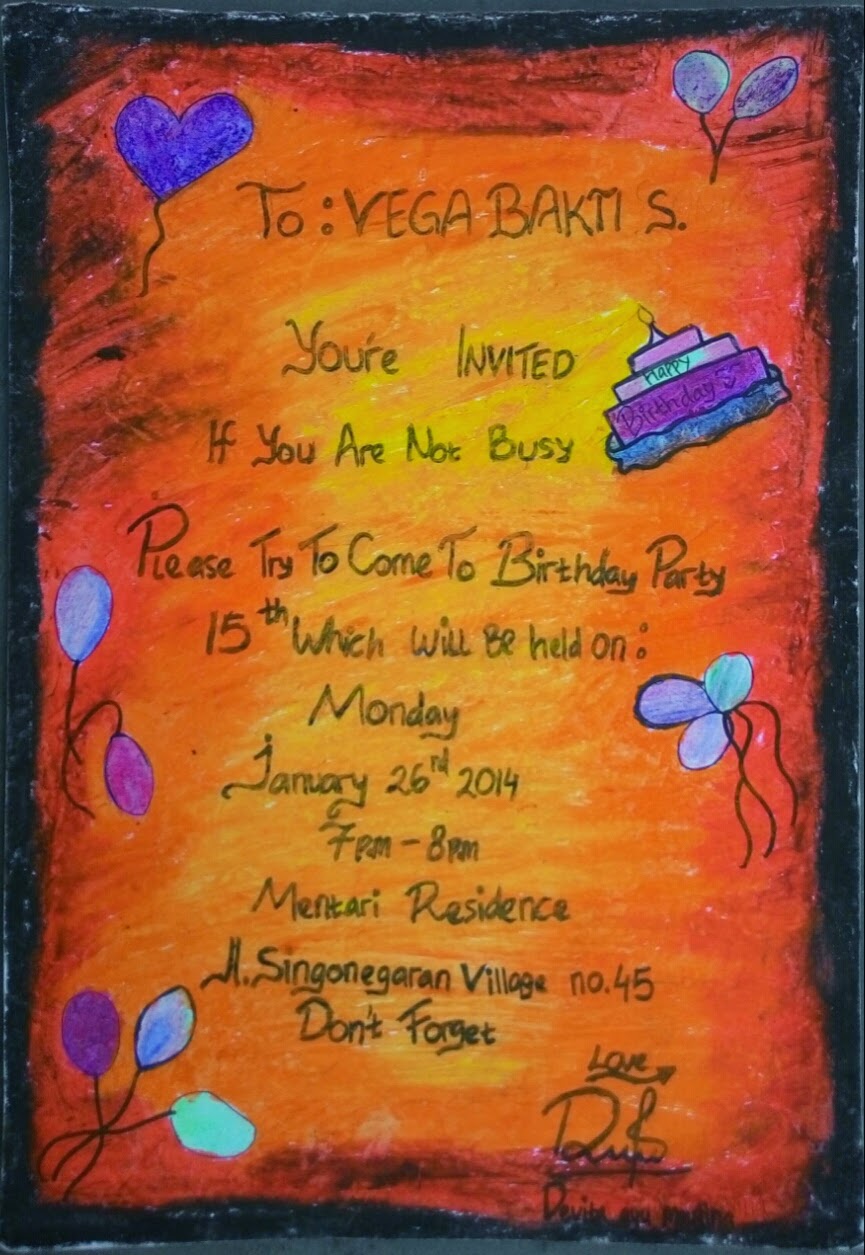 To : VEGA BAKTI S.
You're INVITED
Happy
Birthday
If You Are Not Busy
Please Try To Come To Birthday Party
15th Which will Be held on :
Monday
January 26rd 2014
7pm - 8pm
Mentari Residence
Jl. Singonegaran Village no.45
Don't Forget
Love
Devita ayu